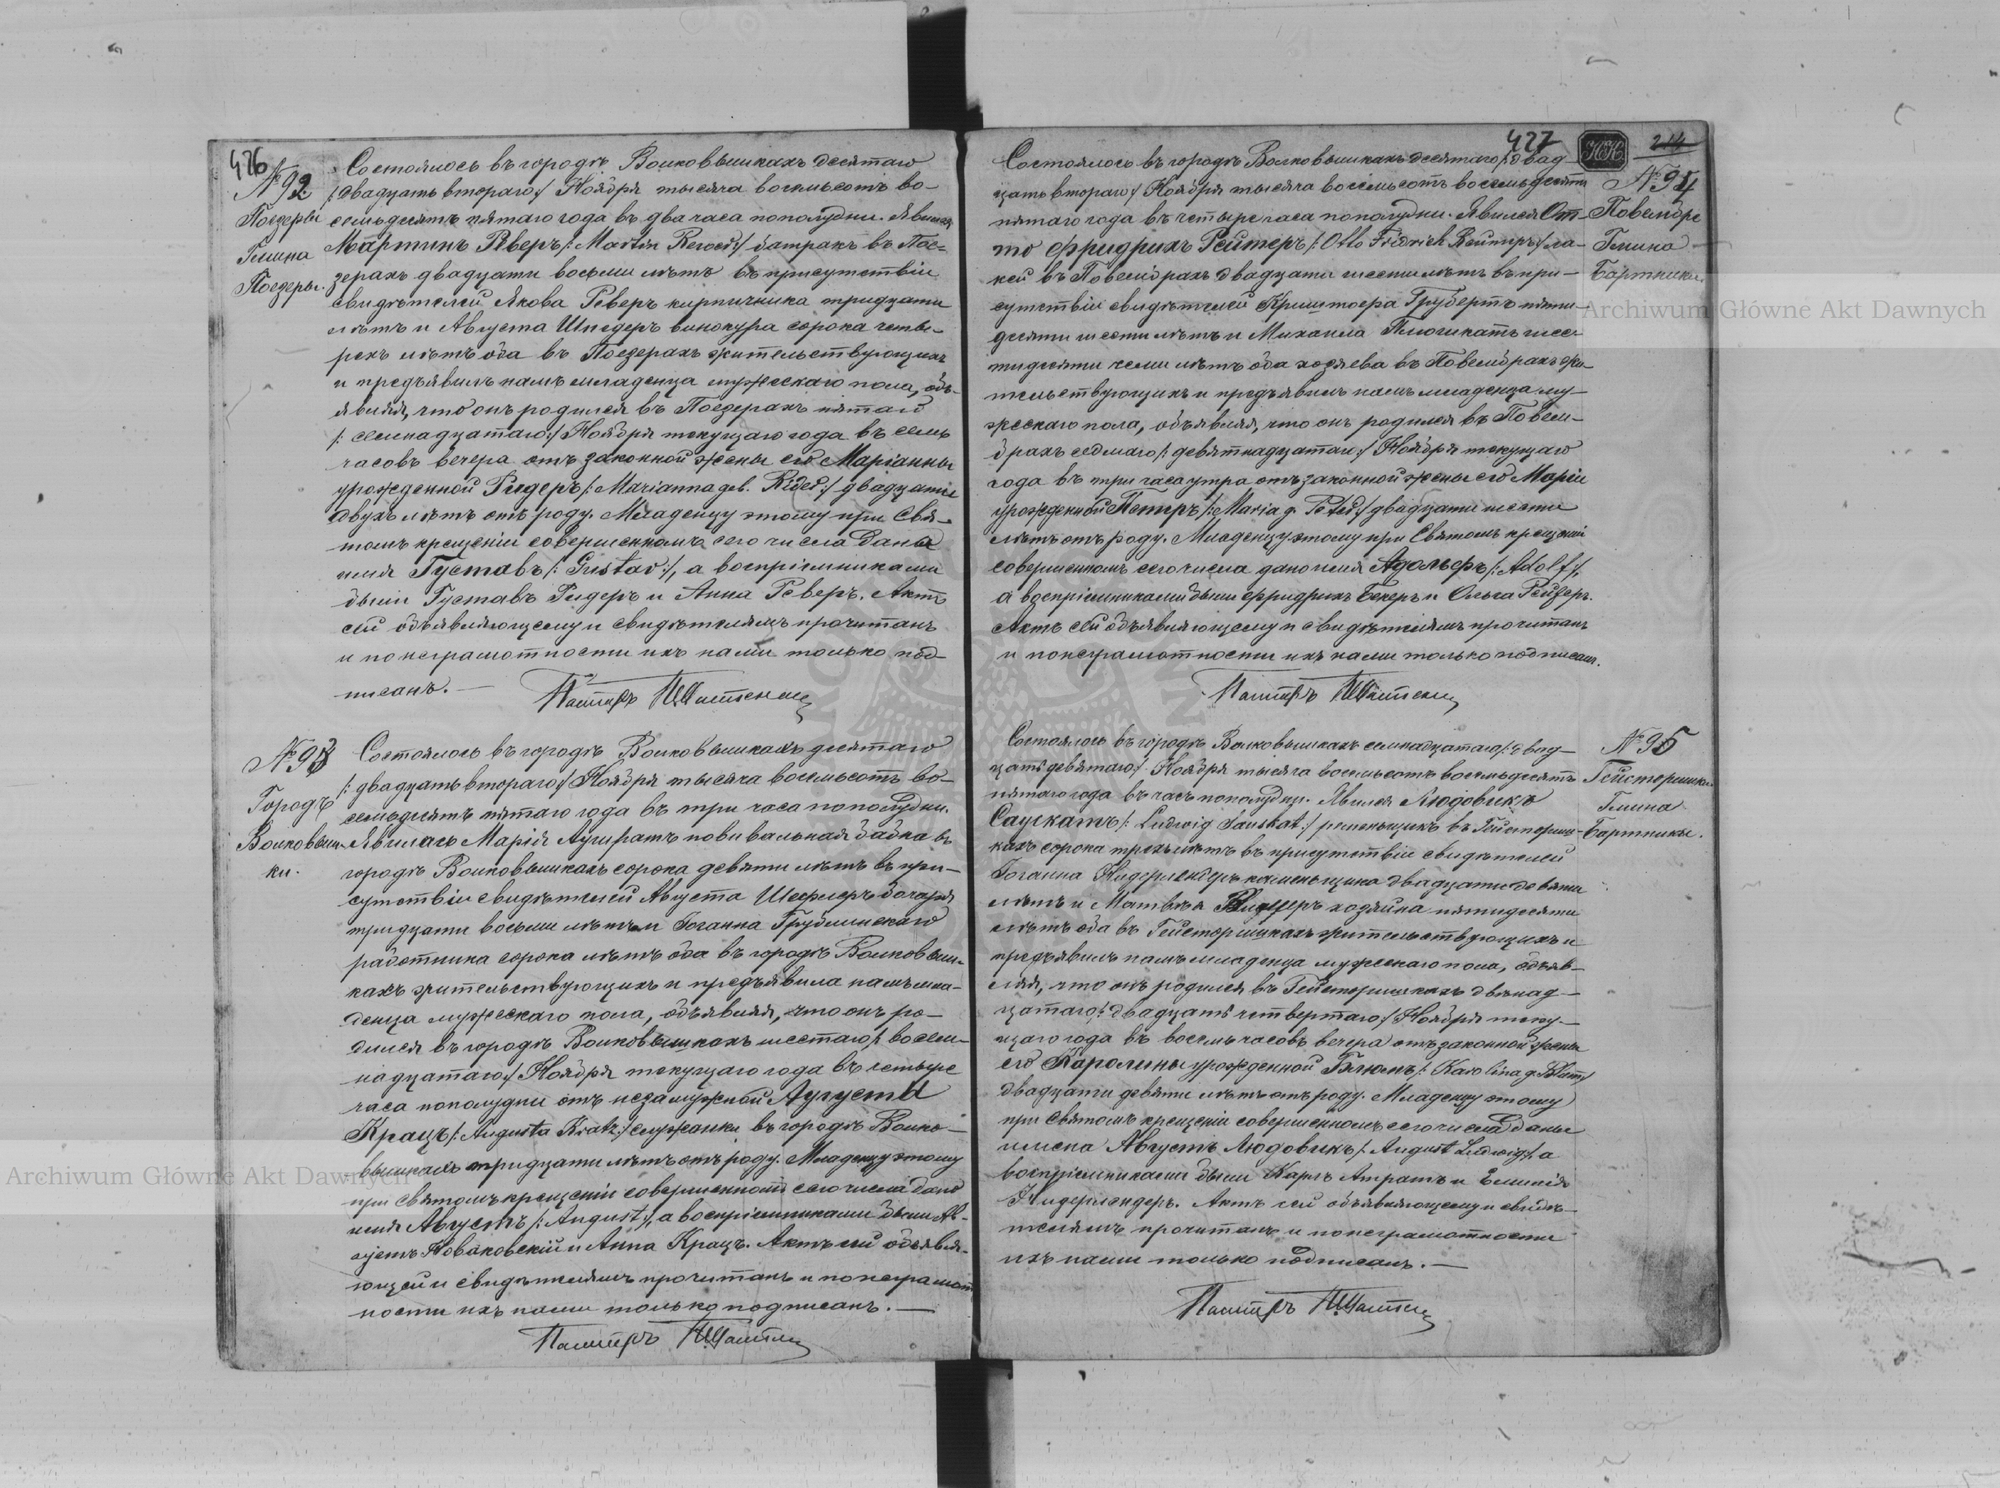 426
№ 92
Поезеры
Гмина
Поезеры.
Состоялось въ городѣ Волковышкахъ десятаго
/: двадцать втораго :/ Ноября тысяча восемьсотъ во-
семьдесятъ пятаго года въ два часа пополудни. Явился
Мартинъ Реверъ /: Martin Rewer :/ батракъ въ Пое-
зерахъ двадцати восьми лѣтъ въ присутствіи
свидѣтелей Якова Реверъ кирпичника тридцати
лѣтъ и Августа Шнедеръ винокура сорока четы-
рехъ лѣтъ оба въ Поезерахъ жительствующихъ
и предъявилъ намъ младенца мужескаго пола, объ-
являя, что онъ родился въ Поезерахъ пятаго
/: семнадцатаго :/ Ноября текущаго года въ семь
часовъ вечера отъ законной жены его Маріанны
урожденной Ридеръ /: Marianna geb. Rider :/ двадцати
двухъ лѣтъ отъ роду. Младенцу этому при Свя-
томъ крещеніи совершенномъ сего числа дано
имя Густавъ /: Gustav :/, а воспріемниками
были Густавъ Ридеръ и Анна Реверъ. Актъ
сей объявляющему и свидѣтелямъ прочитанъ
и по неграмотности ихъ нами только под-
писанъ. —
Пасторъ
№ 93
Городъ
Волковыш-
ки.
Состоялось въ городѣ Волковышкахъ десятаго
/: двадцать втораго :/ Ноября тысяча восемьсотъ во-
семьдесятъ пятаго года въ три часа пополудни.
Явилась Марія Аушратъ повивальная бабка въ
городѣ Волковышкахъ сорока девяти лѣтъ въ при-
сутствіи свидѣтелей Августа Шефлеръ бочаря
тридцати восьми лѣтъ и Іоганна Грублинскаго
работника сорока лѣтъ оба въ городѣ Волковыш-
кахъ жительствующихъ и предъявила намъ мла-
денца мужескаго пола, объявляя, что онъ ро-
дился въ городѣ Волковышкахъ шестаго /: восем-
надцатаго :/ Ноября текущаго года въ четыре
часа пополудни отъ незамужной Аугусты
Крацъ /: Augusta Kratz :/ служанки въ городѣ Волко-
вышкахъ тридцати лѣтъ отъ роду. Младенцу этому
при Святомъ крещеніи совершенномъ сего числа дано
имя Августъ /: August :/, а воспріемниками были Ав-
густъ Новаковскій и Анна Крацъ. Актъ сей объявля-
ющей и свидѣтелямъ прочитанъ и по неграмот-
ности ихъ нами только подписанъ. —
Пасторъ
427
№ 94
Повембре
Гмина
Бартники
Состоялось въ городѣ Волковышкахъ десятаго /: двад-
цать втораго :/ Ноября тысяча восемьсотъ восемьдесятъ
пятаго года въ четыре часа пополудни. Явился От-
то Фридрихъ Рейтеръ /: Otto Fridrich Reiter :/ ла-
кей въ Повембрахъ двадцати шести лѣтъ въ при-
сутствіи свидѣтелей Криштофа Грубертъ пяти-
десяти шести лѣтъ и Михаила Плюшкатъ шес-
тидесяти семи лѣтъ оба хозяева въ Повембрахъ жи-
тельствующихъ и предъявилъ намъ младенца му-
жескаго пола, объявляя, что онъ родился въ Повем-
брахъ седмаго /: девятнадцатаго :/ Ноября текущаго
года въ три часа утра отъ законной жены его Маріи
урожденной Петеръ /: Maria g. Peter :/ двадцати шести
лѣтъ отъ роду. Младенцу этому при Святомъ крещеніи
совершенномъ сего числа дано имя Адольфъ /: Adolf :/,
а воспріемниками были Фридрихъ Бекеръ и Ольга Рейзеръ.
Актъ сей объявляющему и свидѣтелямъ прочитанъ
и по неграмотности ихъ нами только подписанъ.
Пасторъ
№ 95
Гейсторишки
Гмина
Бартники.
Состоялось въ городѣ Волковышкахъ семнадцатаго /: двад-
цать девятаго :/ Ноября тысяча восемьсотъ восемьдесятъ
пятаго года въ часъ пополудни. Явился Людовикъ
Саускатъ /: Ludwig Sauskat :/ ременьщикъ въ Гейсториш-
кахъ сорока трехъ лѣтъ въ присутствіи свидѣтелей
Іоганна Нидерлендеръ каменьщика двадцати девяти
лѣтъ и Матвѣя хозяина пятидесяти
лѣтъ оба въ Гейсторишкахъ жительствующихъ и
предъявилъ намъ младенца мужескаго пола, объяв-
ляя, что онъ родился въ Гейсторишкахъ двѣнад-
цатаго /: двадцать четвертаго :/ Ноября теку-
щаго года въ восемь часовъ вечера отъ законной жены
его Каролины урожденной Блюмъ /: Karolina g. Blum :/
двадцати девяти лѣтъ отъ роду. Младенцу этому
при Святомъ крещеніи совершенномъ сего числа даны
имена Августъ Людовикъ /: August Ludwig :/, а
воспріемниками были Карлъ Атратъ и Эмилія
Нидерлендеръ. Актъ сей объявляющему и свидѣ-
телямъ прочитанъ и по неграмотности
ихъ нами только подписанъ. —
Пасторъ
Archiwum Główne Akt Dawnych
Archiwum Główne Akt Dawnych